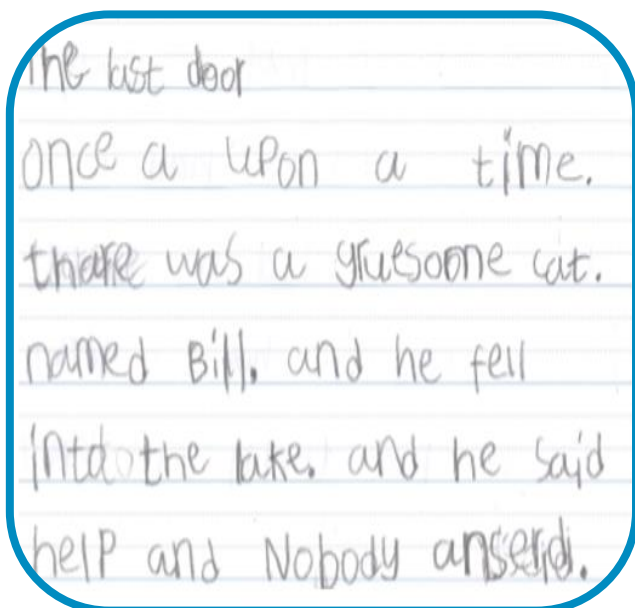 The last door
once a upon a time.
thare was a gruesome cat.
named Bill. and he fell
into the lake. and he said
help and Nobody anserd.